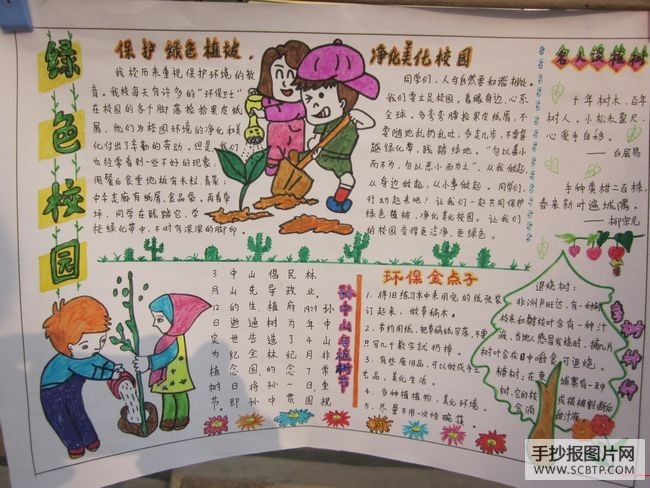 绿色校园
保护绿色植被，
净化美化校园
名人谈植树
我校历来重视保护环境的教
育。我校每天有许多的“环保卫士”
在校园的各个角落捡拾果皮纸
屑，他们为校园环境的净化和美
化付出了辛勤的劳动。但是，我们
也经常看到一些不好的现象：
用餐后食堂地板有米粒、青菜；
中午走廊有纸屑、食品袋。再看草
坪，同学在践踏它，学
校绿化带中，不时有深深的脚印。
同学们，人与自然要和谐相处。
我们要立足校园，着眼身边，心系
全球。多弯弯腰捡果皮纸屑，不
要随地乱扔乱吐；多走几步，不要穿
越绿化带，践踏绿地。“勿以善小
而不为，勿以恶小而为之”。从我做起，
从身边做起，从小事做起。同学们，
行动起来吧！让我们一起共同保护
绿色植被，净化美化校园。让我们
的校园变得更洁净、更绿色。
十年树木，百年
树人。小松未盈尺，
心爱手自移。
——白居易
手种黄柑二百株，
春来新叶遍城隅。
——柳宗元
孙中山与植树节
孙中山非常重视
1929年4月7日，国
民政府为纪念孙中
林业。
倡导植树造林的
中山先生，
3月12日定为植树节。
环保金点子
1．将旧练习本中未用完的纸张装
订起来，做草稿本。
2．节约用纸，把草稿纸写满，不要
只写几个数字就扔掉。
3．有些废旧品，可以做成手工
艺品，美化生活。
4．多种植植物，美化环境。
5．尽量不用一次性碗筷。
退烧树：
非洲卢旺达，有一种树，
枝木和树枝叶含有一种汁
液，当地人感冒发烧时，摘几片
树叶含在口中咀嚼可退烧。
手抄报图片网
WWW.SCBTP.COM